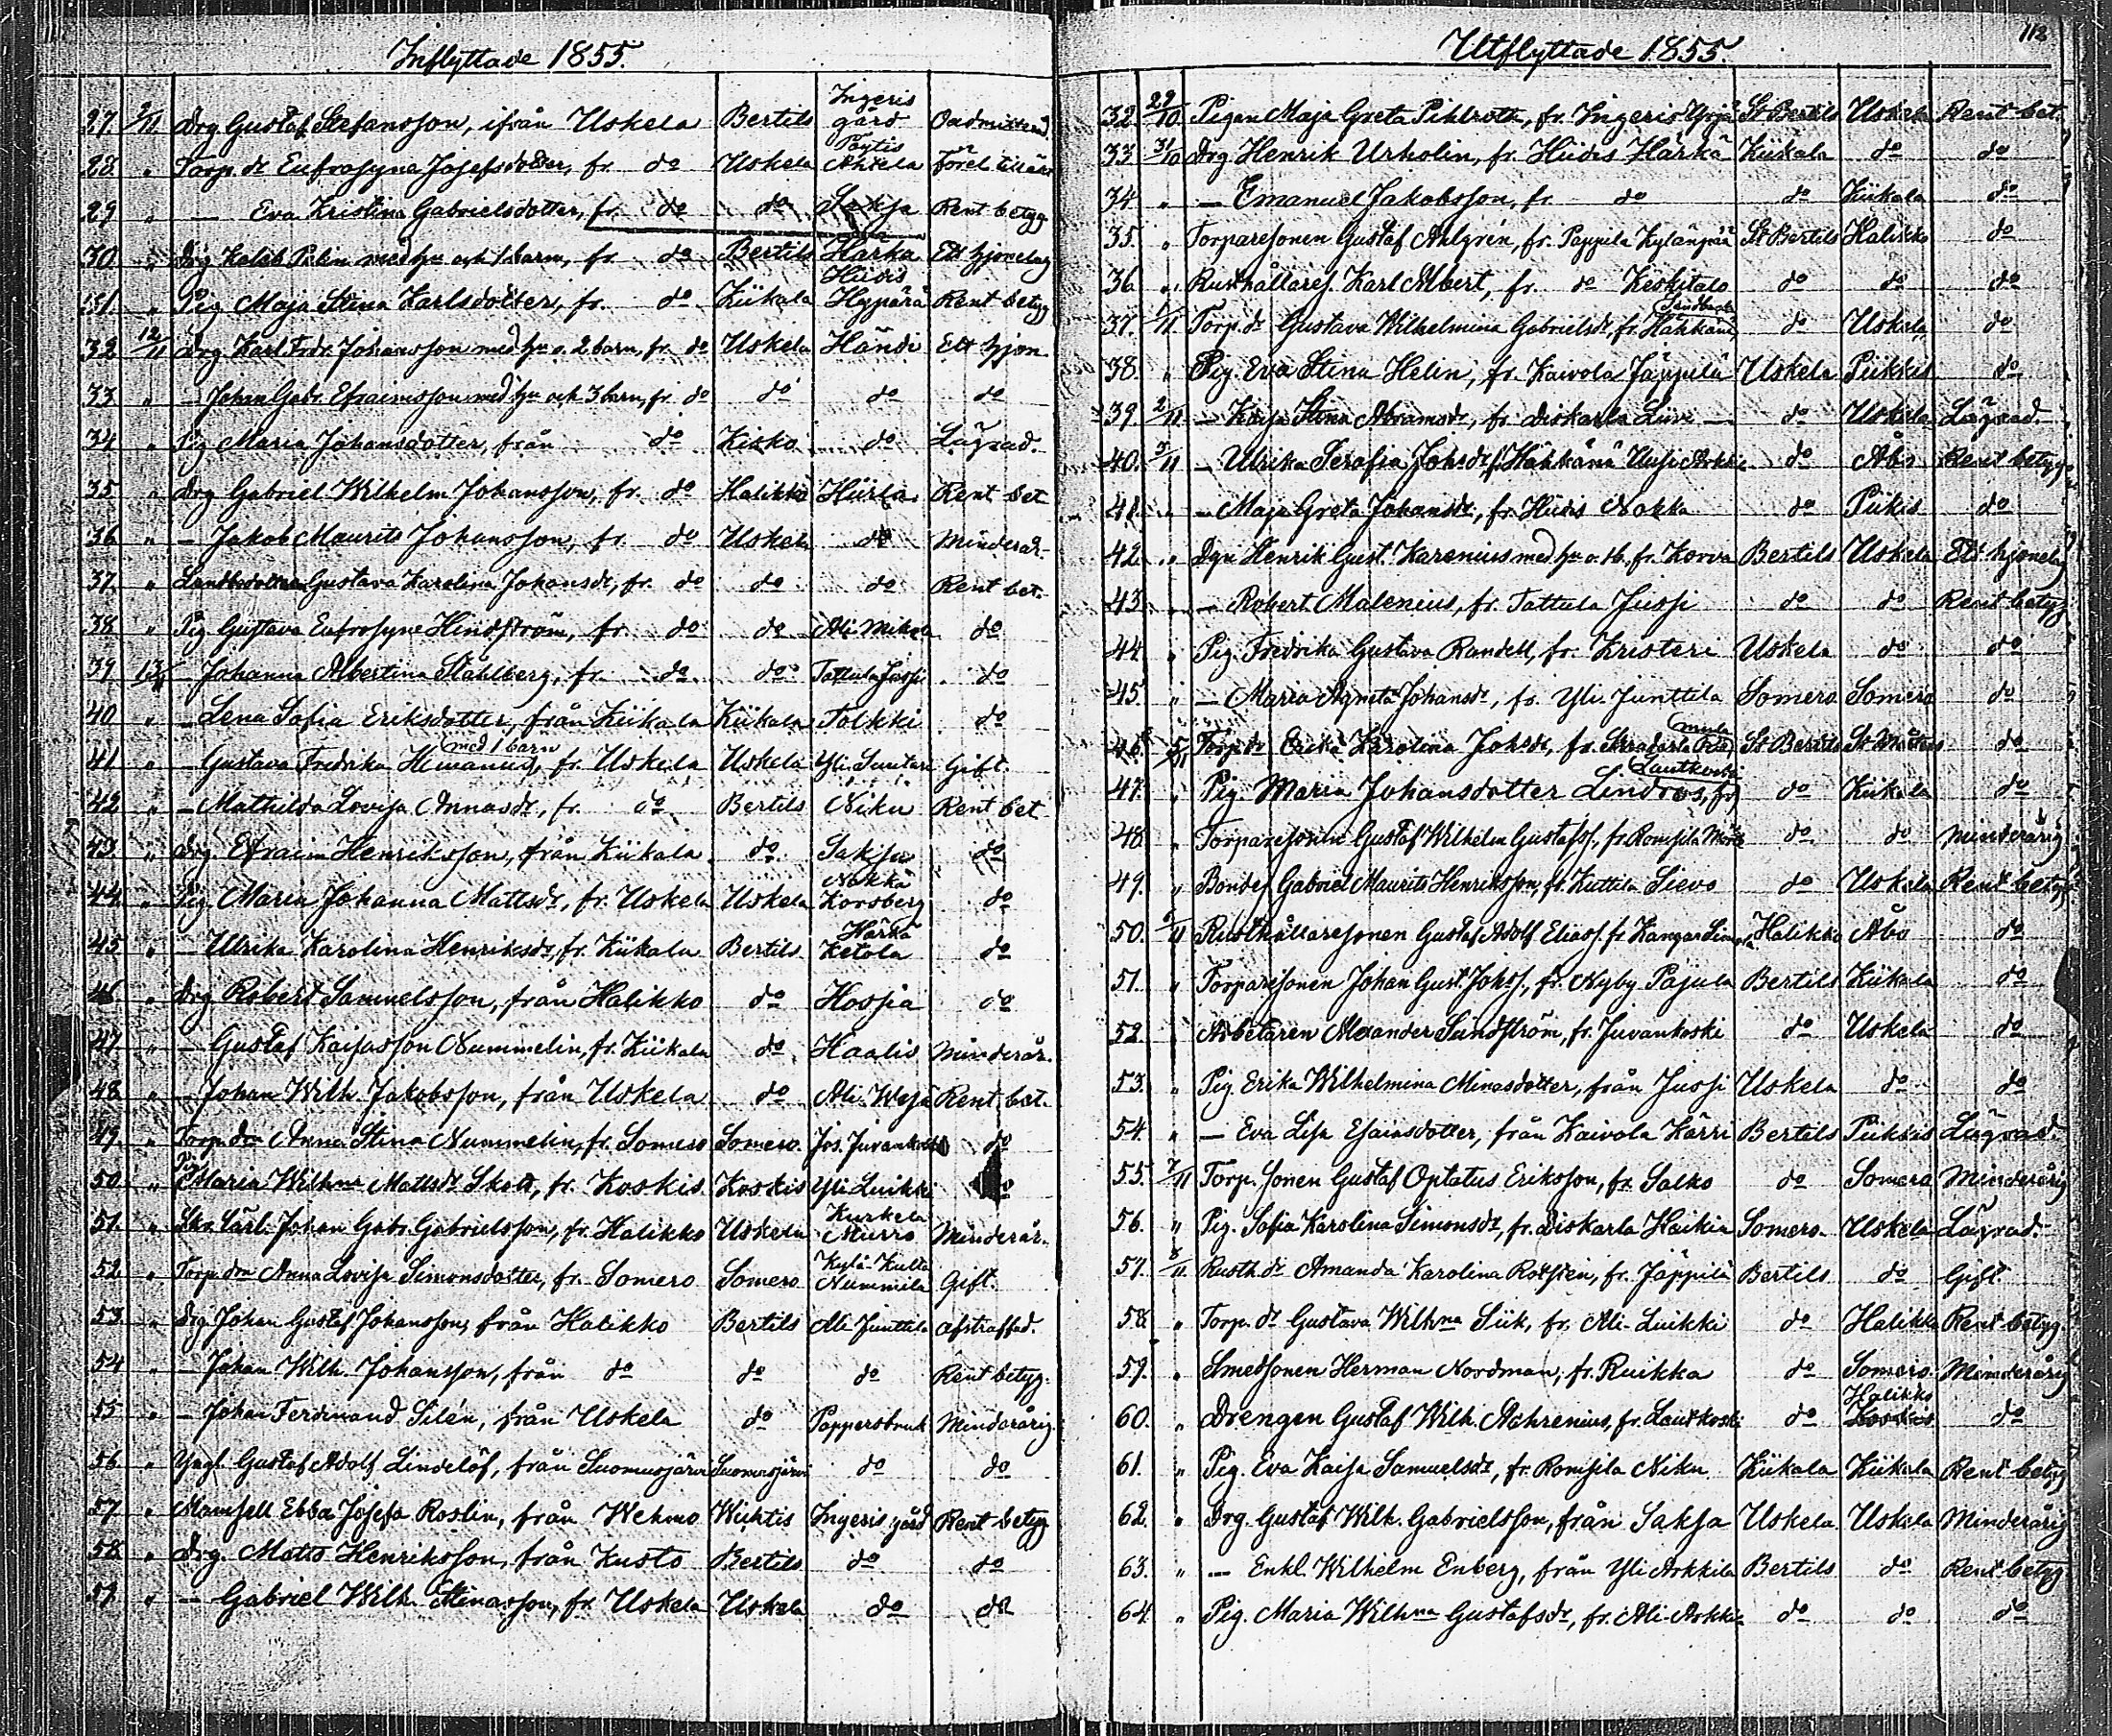 Inflyttade 1855.
27 9/11 Drg Gustaf Stefansson, ifrån Uskela Bertils Ingeris gård Oadmitterad
28. " Torp. dr Eufrosyne Josefsdotter, fr. do Uskela Pöytis Ahtela
29 " — Eva Kristina Gabrielsdotter, fr. do do Saksa Rent betyg
30 " Drg Kaleb Pelin med hu och 1 barn, fr. do Bertils Härkä Ett hjonelag
31 " Pig Maja Stina Karlsdotter, fr. do Kiikala Hiidis Hypärä Rent betyg
32 12/11 Drg Karl Fredr. Johansson med hu o. 2 barn, fr. do Uskela Händi Ett hjon.
33 " — Johan Gabr. Efraimsson med hu och 3 barn, fr. do do do do
34 " Pig Maria Johansdotter, från do Kisko do Lägrad.
35 " Drg Gabriel Wilhelm Johansson, fr. do Halikko Hiirla Rent bet
36 " — Jakob Maurits Johansson, fr. do Uskela do Minderår.
37 " Gustava Karolina Johansdr, fr. do do do Rent bet.
38 " Pig Gustava Eufrosyne Hindström, fr. do do Ali Mikola do
39 13/11 — Johanna Albertina Ståhlberg, fr. do do Tattula Jussi do
40 " — Lena Sofia Eriksdotter, från Kiikala Kiikala Tolkki do
41 " — Gustava Fredrika Hemanus med 1 barn, fr. Uskela Uskela Yli Junttila Gift.
42 " — Mathilda Lovisa Annasdr, fr. do Bertils Niku Rent bet
43 " Drg. Efraim Henriksson, från Kiikala do Saksa do
44 " Pig. Maria Johanna Mattsdr, fr. Uskela Uskela Nokka Korsberg do
45 " — Ulrika Karolina Henriksdr, fr. Kiikala Bertils Härkä Ketola do
46 " Drg Robert Samuelsson, från Halikko do Hossia do
47 " — Gustaf Kaisasson Nummelin, fr. Kiikala do Haalis Minderår.
48 " — Johan Wilh. Jakobsson, från Uskela do Ali Wejä Rent bet.
49. " Torp. drn Anna Stina Nummelin, fr. Somero Somero Jos. Juvankoski do
50 " Pig Maria Wilhna Mattsdr Skott, fr. Koskis Koskis Yli Luikki do
51. " Skr. lärl. Johan Gabr. Gabrielsson, fr. Halikko Uskela Kurkela Murro Minderår.
52 " Torp drn Anna Lovisa Simonsdotter, fr. Somero Somero Kylä-Kulla Nummila Gift.
53 " Drg Johan Gustaf Johansson, från Halikko Bertils Ali Junttila afstraffad.
54 " — Johan Wilh. Johansson, från do do do Rent betyg.
55 " — Johan Ferdinand Silén, från Uskela do Pappersbruk Minderårig.
56 " Yngl. Gustaf Adolf Lindelöf, från Suomusjärvi Suomusjärvi do do
57 " Mamsell Ebba Josefa Roslin, från Wehmo Wichtis Ingeris gård Rent betyg
58. " Drg. Matts Henriksson, från Kusto Bertils do do
59 " — Gabriel Wilh. Minasson, fr. Uskela Uskela do do
112
Utflyttade 1855.
32. 29/10 Pigan Maja Greta Pihlroth, fr. Ingeris Yrjä St Bertils Uskela Rent bet.
33 31/10 Drg Henrik Urholin, fr. Hiidis Härkä Kiikala do do
34 " — Emanuel Jakobsson, fr. do do Kiikala do
35. " Torparesonen Gustaf Ahlgrén, fr. Pappila Kylänpää St Bertils Halikko do
36 " Rusthållares. Karl Albert, fr. do Keskitalo do do do
37. 1/11 Torp. dr Gustava Wilhelmina Gabrielsdr, fr. Häkkänä Sandbacka do Uskela do
38. " Pig. Eva Stina Helin, fr. Kaivola Jäppilä Uskela Piikkis do
39. 2/11 — Kajsa Stina Abramsdr, fr. Diskarla Liivi — do Uskela Lägrad.
40. 3/11 — Ulrika Serafia Johsdr, fr. Häkkänä Uusi Arkki do Åbo Rent betyg
41. " — Maja Greta Johansdr, fr. Hiidis Nokka do Piikis do
42. " Dgn Henrik Gust. Karenius med hu o. 1 b., fr. Korva Bertils Uskela Ett hjonelag
43 " — Robert Malenius, fr. Tattula Jussi do do Rent betyg
44 " Pig. Fredrika Gustava Randell, fr. Kristeri Uskela do do
45 " — Maria Agneta Johansdr, fr. Yli Junttila Somero Somero do
46 5/11 Torp. dr Erika Karolina Johsdr, fr. St Bertils St Mårtens do
47. " Pig. Maria Johansdotter Lindros, fr. Lautkoski do Kiikala do
48 " Torparesonen Gustaf Wilhelm Gustafss., fr. Romsila do do Minderårig
49. " Bondes. Gabriel Maurits Henriksson, fr. Kuttila Sievo do Uskela Rent betyg
50. 6/11 Rusthållaresonen Gustaf Adolf Eliass. fr. Kangas Simola Halikko Åbo do
51. " Torparesonen Johan Gust. Johss., fr. Nyby Pajula Bertils Kiikala do
52. " Arbetaren Alexander Sundström, fr. Juvankoski do Uskela do
53. " Pig. Erika Wilhelmina Minasdotter, från Jussi Uskela do do
54. " — Eva Lisa Esaiasdotter, från Kaivola Kärri Bertils Piikkis Lägrad.
55. 7/11 Torp. sonen Gustaf Optatus Eriksson, fr. Salko do Somero Minderårig
56. " Pig. Sofia Karolina Simonsdr, fr. Diskarla Haikia Somero. Uskela Lägrad.
57. 8/11 Rusth. dr Amanda Karolina Rotsten, fr. Jäppilä Bertils do Gift.
58. " Torp. dr Gustava Wilhna Siik, fr. Ali-Luikki do Halikko Rent betyg.
59. " Smedsonen Herman Nordman, fr. Ruikka do Somero Minderårig
60. " Drengen Gustaf Wilh. Aahrenius, fr. Lautkoski do Halikko do
61. " Pig. Eva Kaisa Samuelsdr, fr. Romsila Niku Kiikala Kiikala Rent betyg
62. " Drg. Gustaf Wilh. Gabrielsson, från Saksa Uskela Uskela Minderårig
63. " — Enkl. Wilhelm Enberg, från Yli Arkkila Bertils do Rent betyg
64. " Pig. Maria Wilhna Gustafsdr, fr. Ali-Arkki do do do